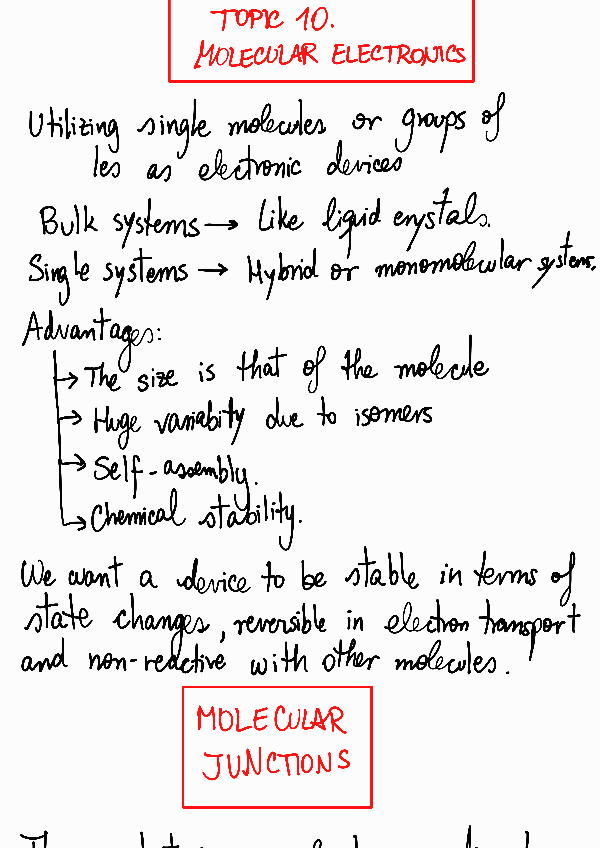 TOPIC 10.
MOLECULAR ELECTRONICS
Utilizing single molecules or groups of
les as electronic devices
Bulk systems → Like liquid crystals.
Single systems → Hybrid or monomolecular systems.
Advantages:
→ The size is that of the molecule
→ Huge variabity due to isomers
→ Self-assembly.
→ Chemical stability.
We want a device to be stable in terms of
state changes, reversible in electron transport
and non-reactive with other molecules.
MOLECULAR
JUNCTIONS